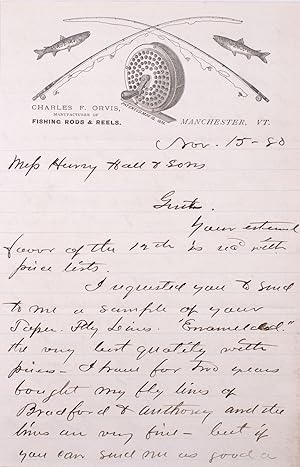 CHARLES F. ORVIS,
MANUFACTURER OF
FISHING RODS & REELS.
MANCHESTER, VT.
Nov. 15-80
Mess Henry Hall & Sons
Gents.
Your esteemed
favor of the 12th is rec'd with
price lists.
I requested you to send
to me a sample of your
Taper Fly Lines. "Enameled."
the very best quality with
prices - I have for two years
bought my fly lines of
Bradford & Anthony and the
lines are very fine - but if
you can send me as good a